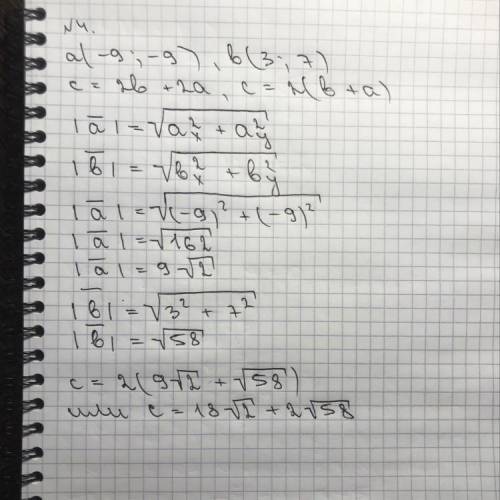 №4.
a(-9;-9), b(3;7)
c = 2b + 2a, c = 2(b + a)
|a̅| = √(aₓ² + a_y²)
|b̅| = √(bₓ² + b_y²)
|a̅| = √((-9)² + (-9)²)
|a̅| = √162
|a̅| = 9√2
|b̅| = √(3² + 7²)
|b̅| = √58
c = 2(9√2 + √58)
или c = 18√2 + 2√58